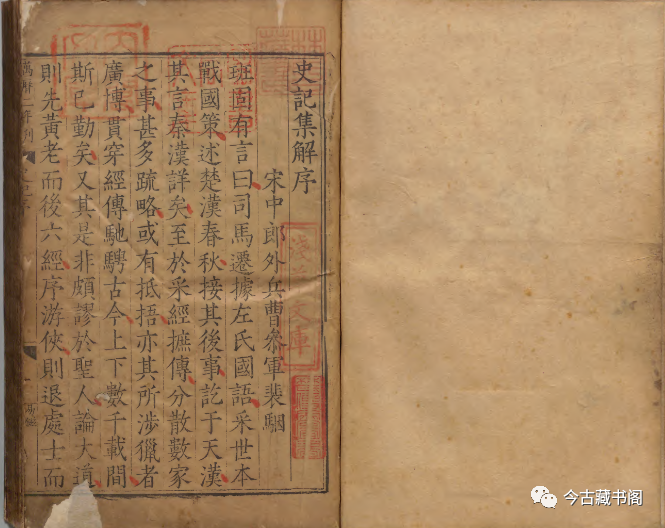 史記集解序
宋中郎外兵曹參軍裴駰
班固有言曰司馬遷據左氏國語采世本
戰國策述楚漢春秋接其後事訖于天漢
其言秦漢詳矣至於采經摭傳分散數家
之事甚多疏略或有抵捂亦其所涉獵者
廣博貫穿經傳馳騁古今上下數千載間
斯已勤矣又其是非頗謬於聖人論大道
則先黃老而後六經序游俠則退處士而
文庫
今古藏书阁